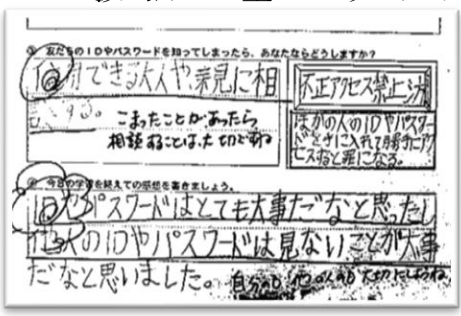 ③ 友だちのIDやパスワードを知ってしまったら、あなたならどうしますか?
信用できる大人や、親に相
談する。
こまったことがあったら
相談することは、大切ですね
不正アクセス禁止法
ほかの人のIDやパスワー
ドを手に入れて勝手にアク
セスすると罪になる。
④ 今日の学習を終えての感想を書きましょう。
パスワードはとても大事だなと思ったし
他人のIDやパスワードは見ないことが大事
だなと思いました。
自分のも 他の人のも 大切にしようね